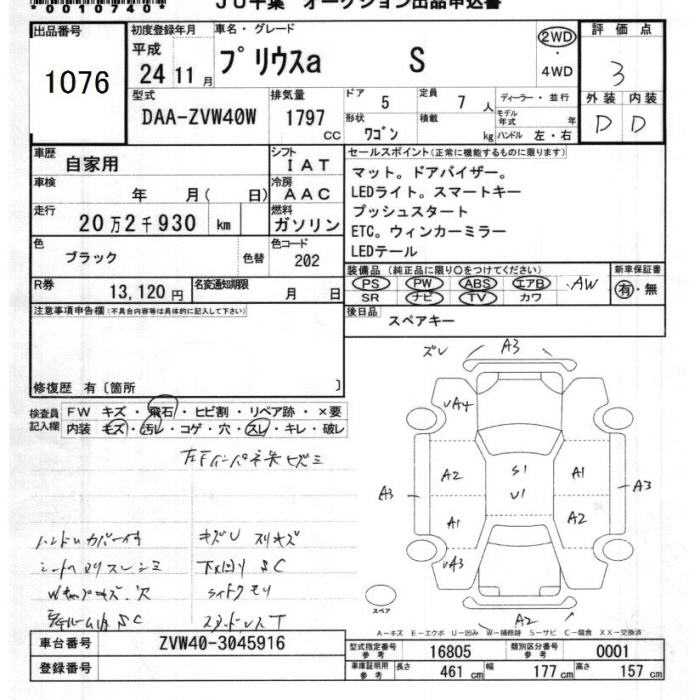 *0010740*
JU千葉 オークション出品申込書
出品番号
1076
初度登録年月
平成
24 11 月
車名・グレード
プリウスa S
2WD
・
4WD
評価点
3
外装 内装
D D
型式
DAA-ZVW40W
排気量
1797
CC
ドア
5
定員
7 人
形状
ワゴン
積載
kg
ディーラー・並行
モデル年式 年
ハンドル 左・右
車歴
自家用
シフト
IAT
車検
年 月( 日)
冷房
AAC
走行
20万2千930 km
燃料
ガソリン
色
ブラック
色替
色コード
202
R券
13,120 円
名変通知期限
月 日
セールスポイント(正常に機能するものに限ります)
マット。ドアバイザー。
LEDライト。スマートキー
プッシュスタート
ETC。ウィンカーミラー
LEDテール
装備品(純正品に限り○をつけてください)
PS PW ABS エアB AW
SR ナビ TV カワ
新車保証書
有・無
後日品
スペアキー
注意事項申告欄(不具合内容等は具体的に記入して下さい)
修復歴 有〔箇所 〕
検査員
記入欄
FW キズ・飛石・ヒビ割・リペア跡・×要
内装 キズ・汚レ・コゲ・穴・スレ・キレ・破レ
ハンドルカバー付
キズU スリキズ
シートヘタリ スレ シミ
下廻り SC
ライトクモリ
スタッドレスT
ズレ A3
UA4
A2
A1
UA3
A3
S1
U1
A1
A2
A3
A2
スペア
A-キズ E-エクボ U-凹み W-補修跡 S-サビ C-腐食 XX-交換済
車台番号
ZVW40-3045916
登録番号
型式指定番号
参考
16805
類別区分番号
参考
0001
車庫証明用
参考
長さ 461 cm
幅 177 cm
高さ 157 cm